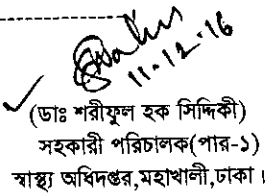 11-12-16
(ডাঃ শরীফুল হক সিদ্দিকী)
সহকারী পরিচালক(পার-১)
স্বাস্থ্য অধিদপ্তর,মহাখালী,ঢাকা।